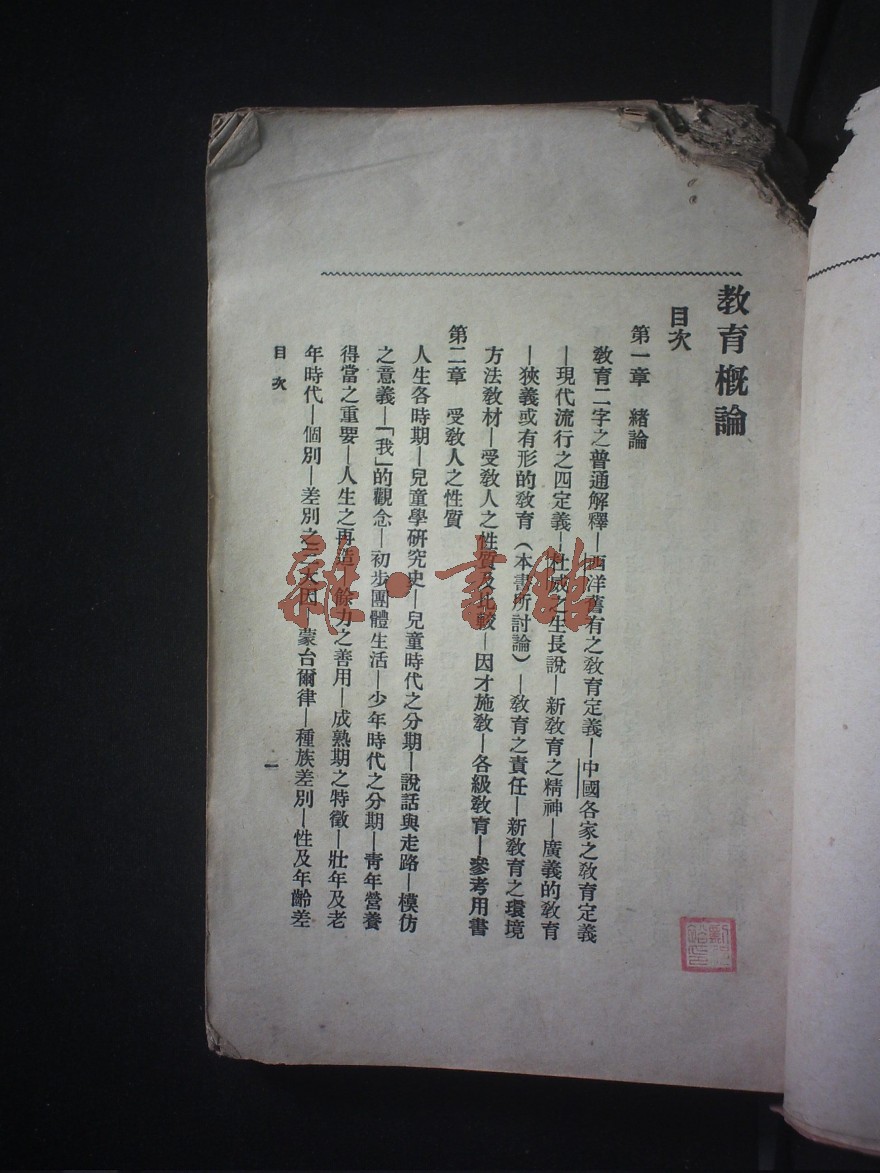 教育概論
目次
第一章　緒論
教育二字之普通解釋—西洋舊有之教育定義—中國各家之教育定義
—現代流行之四定義—杜威之生長說—新教育之精神—廣義的教育
—狹義或有形的教育（本書所討論）—教育之責任—新教育之環境
方法教材—受教人之性質及比較—因才施教—各級教育—參考用書
第二章　受教人之性質
人生各時期—兒童學研究史—兒童時代之分期—說話與走路—模仿
之意義—「我」的觀念—初步團體生活—少年時代之分期—青年營養
得當之重要—人生之再造—餘力之善用—成熟期之特徵—壯年及老
年時代—個別—差別之三大因—蒙台爾律—種族差別—性及年齡差
目次
一
雜·書館